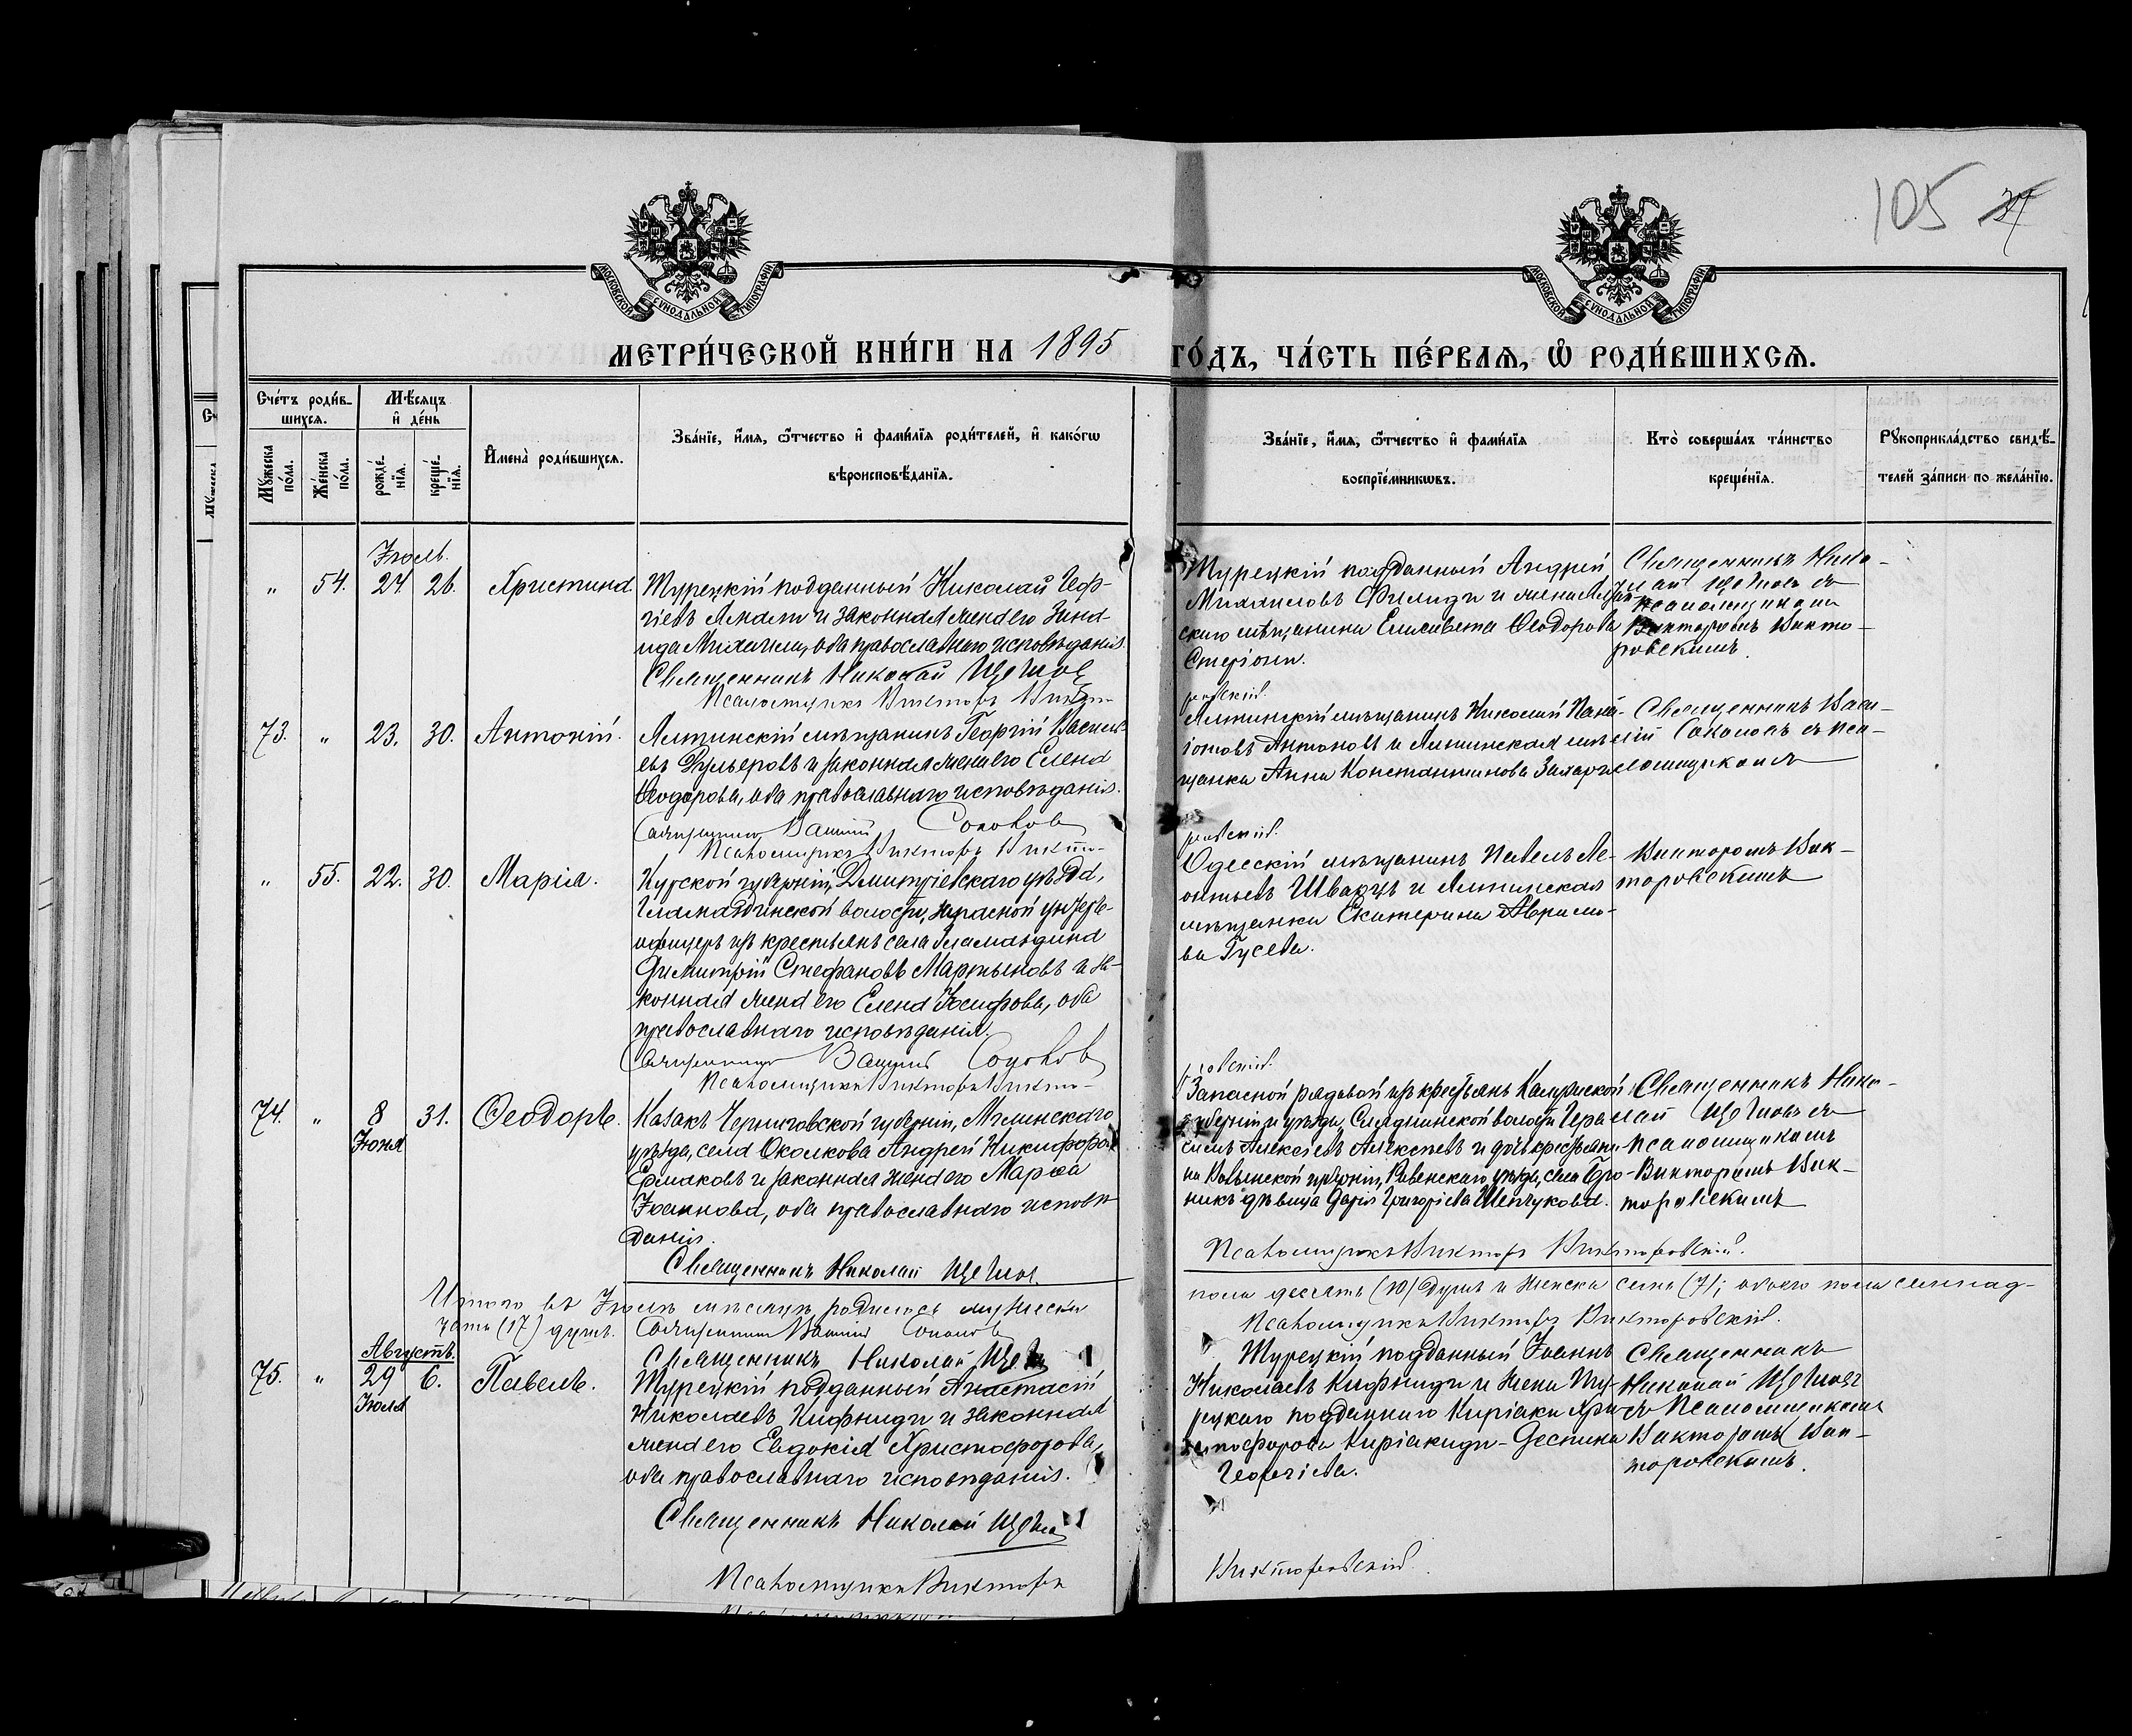 105 37
МОСКОВСКОЙ СУНОДАЛЬНОЙ ТИПОГРАФІИ
МОСКОВСКОЙ СУНОДАЛЬНОЙ ТИПОГРАФІИ
МЕТРИ́ЧЕСКОЙ КНИ́ГИ НА 1895 ГО́ДЪ, ЧА́СТЬ ПЕ́РВАЯ, Ѡ҆ РОДИ́ВШИХСЯ.
Сче́тъ роди́в-
шихся.
Мꙋжеска по́ла.
Же́нска по́ла.
Мѣ́сяцъ
и҆ де́нь
рожде́-нїя.
креще́-нїя.
И҆мена̀ роди́вшихся.
Зва́нїе, и҆́мя, ѻ҆́тчество и҆ фами́лїя роди́телей, и҆ како́гѡ
вѣроисповѣ́данїя.
Зва́нїе, и҆́мя, ѻ҆́тчество и҆ фами́лїя
воспрїе́мникѡвъ.
Кто̀ соверша́лъ та́инство
креще́нїя.
Рꙋкоприкла́дство свидѣ́-
телей за́писи по жела́нїю.
Іюль.
" 54. 24. 26. Христина.
Турецкій подданный Николай Геор-
гіевъ и законная жена его Зина-
ида Михаили, оба православнаго исповѣданія.
Священникъ Николай Щегловъ
Псаломщикъ Викторъ Викто-
Турецкій подданный Андрей
Михаиловъ Филиди и жена Ялтин-
скаго мѣщанина Елисавета Ѳеодорова
Стеріони.
ровскій.
Священникъ Нико-
лай Щегловъ съ
псаломщикомъ
Викторомъ Викто-
ровскимъ.
73. " 23. 30. Антоній.
Ялтинскій мѣщанинъ Георгій Василь-
евъ и законная жена его Елена
Ѳеодорова, оба православнаго исповѣданія.
Священникъ Василій Соколовъ
Псаломщикъ Викторъ Викто-
Ялтинскій мѣщанинъ Николай Пана-
іотовъ Антоновъ и Ялтинская мѣ-
щанка Анна Константинова
ровскій.
Священникъ Васи-
лій Соколовъ съ пса-
ломщикомъ
" 55. 22. 30. Марія.
Курской губерніи, Дмитріевскаго уѣзда,
волости, запасной унтеръ-
офицеръ изъ крестьянъ села
Димитрій Стефановъ Мартыновъ и за-
конная жена его Елена Іосифова, оба
православнаго исповѣданія.
Священникъ Василій Соколовъ
Псаломщикъ Викторъ Викто-
Одесскій мѣщанинъ Павелъ Ле-
онтьевъ Шварцъ и Ялтинская
мѣщанка Екатерина Абрамо-
ва Гусева.
ровскій.
Викторомъ Вик-
торовскимъ
74. " 8 31. Ѳеодоръ.
Іюня
Казакъ Черниговской губерніи, Мглинскаго
уѣзда, села Околкова Андрей Никифоровъ
Ермаковъ и законная жена его Марѳа
Іоаннова, оба православнаго исповѣ-
данія.
Священникъ Николай Щегловъ.
Запасной рядовой изъ крестьянъ Калужской
губерніи и уѣзда, волости Гера-
симъ Алексіевъ Алексѣевъ и дочь крестьяни-
на Волынской губерніи, Ровенскаго уѣзда, села
дѣвица Дарія Григоріева Шевчукова.
Псаломщикъ Викторъ Викторовскій.
Священникъ Нико-
лай Щегловъ съ
псаломщикомъ
Викторомъ Вик-
торовскимъ
Итого въ Іюлѣ мѣсяцѣ родилось мужеска пола десять (10) душъ и женска семь (7); обоего пола семнад-
цать (17) душъ. Священникъ Василій Соколовъ
Псаломщикъ Викторъ Викторовскій.
Августъ.
Священникъ Николай Щегловъ
75. " 29 6. Павелъ.
Іюля
Турецкій подданный Анастасій
Николаевъ Кифниди и законная
жена его Евдокія Христофорова,
оба православнаго исповѣданія.
Священникъ Николай Щегловъ
Псаломщикъ Викторъ
Турецкій подданный Іоаннъ
Николаевъ Кифниди и жена Ту-
рецкаго подданнаго Киріака Хри-
стофорова Киріакиди - Деспина
Георгіева.
Викторовскій.
Священникъ
Николай Щегловъ
съ Псаломщикомъ
Викторомъ Вик-
торовскимъ.